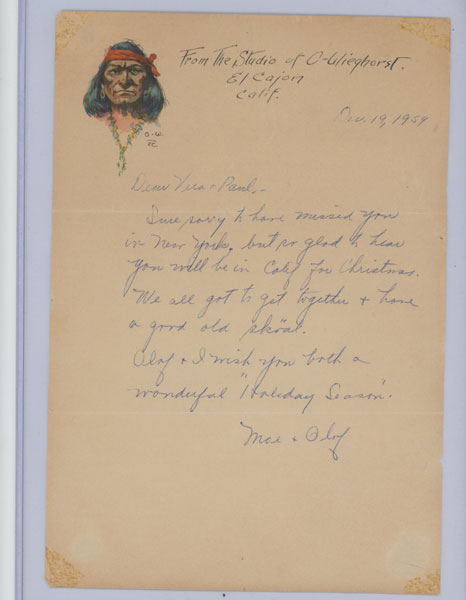 From The Studio of O-Wieghorst.
El Cajon
Calif.
O.W.
Dec. 19, 1959
Dear Vera + Paul,-
Sure sorry to have missed you
in New York, but so glad to hear
you will be in Calif for Christmas.
We all got to get together + have
a good old skōal.
Olaf + I wish you both a
wonderful "Holiday Season".
Mae + Olaf